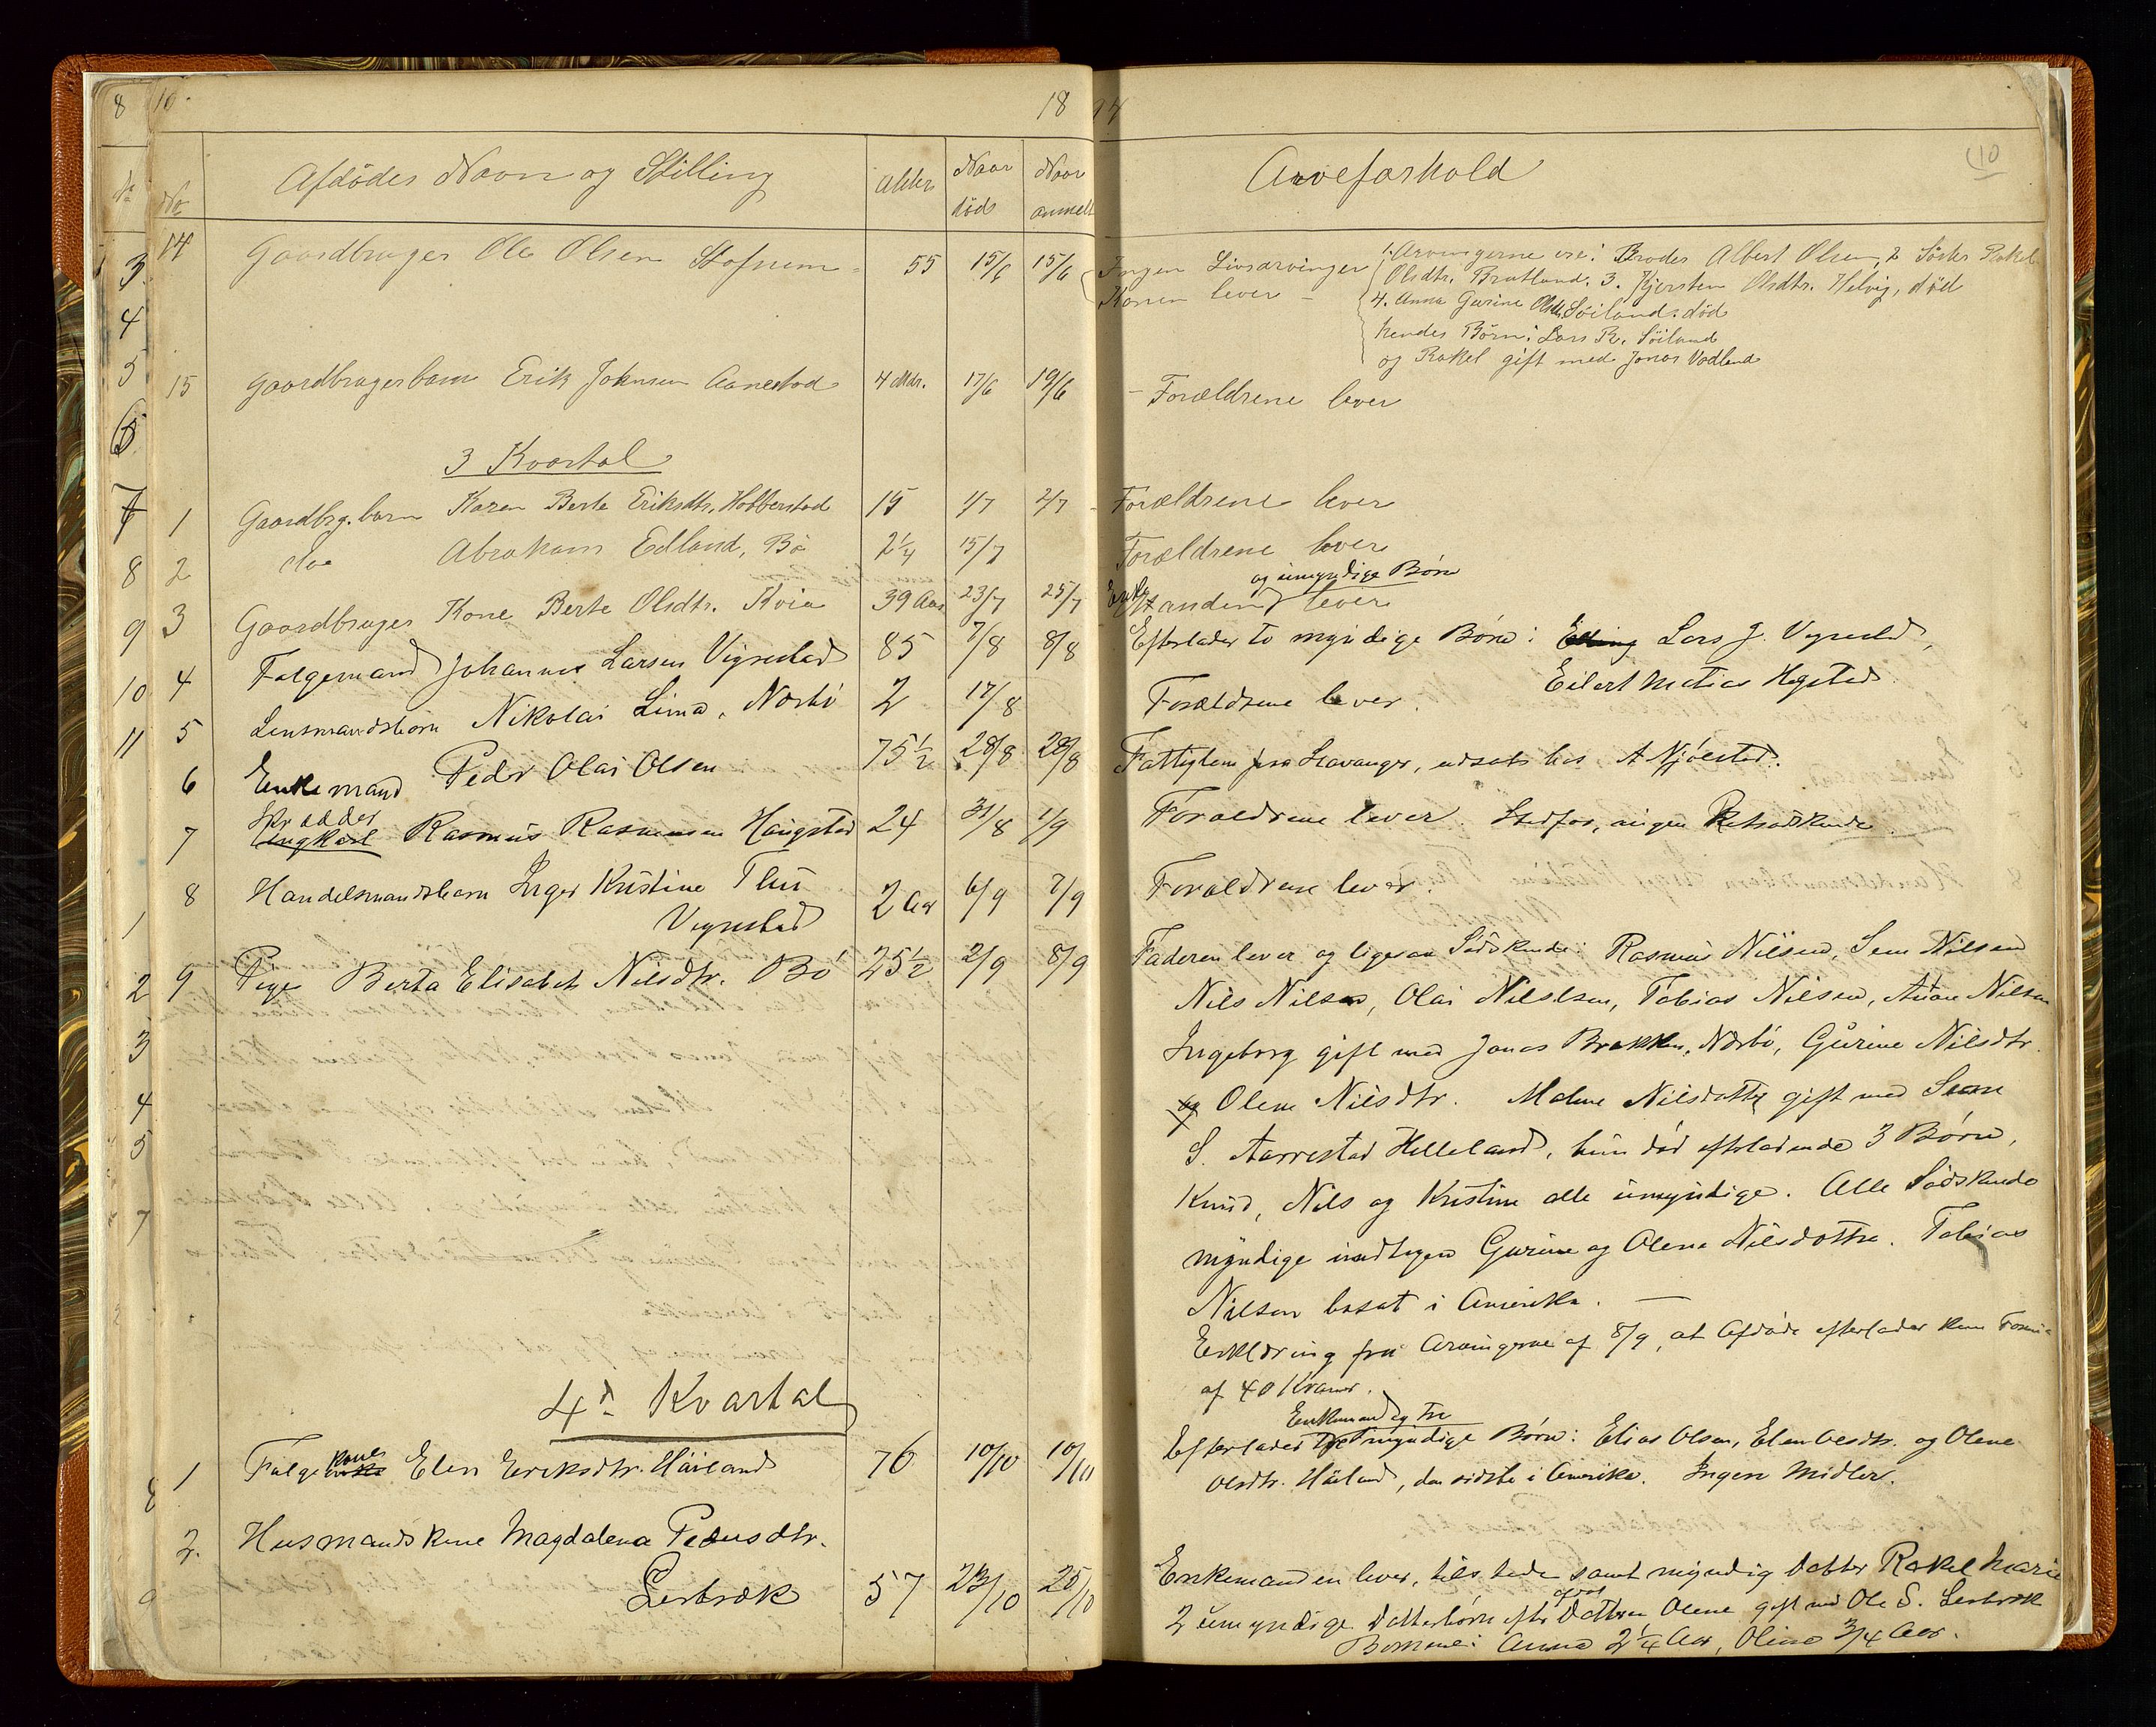 8 10. 1894
(10
No Afdödes Navn og Stilling Alder Naar död Naar anmelt Arveforhold
14 Gaardbruger Ole Olsen Stofnem 55 15/6 15/6 Ingen Livsarvinger
Konen lever
1. Arvingerne ere: Broder Albert Olsen, 2 Söster Rakel
Olsdtr. Bratland. 3. Kjersten Olsdtr. Helvig, död
4. Anna Gurine Olsdtr. Söiland. död
hendes Börn: Lars R. Söiland
og Rakel gift med Jonas Vodland
15 Gaardbrugerbarn Erik Johnsen Aanestad 4 Mdr. 17/6 19/6 - Forældrene lever
3 Kvartal
1 Gaardbrg.barn Karen Berte Eriksdtr. Hobberstad 15 1/7 2/7 - Forældrene lever
2 do Abraham Edland, Bö 2 1/4 15/7 Forældrene lever
og umyndige Börn
3 Gaardbruger Kone Berte Olsdtr. Kvia 39 Aar 23/7 25/7 Enkemanden lever
4 Følgemand Johannes Larsen Vigrestad 85 7/8 8/8 Efterlader to myndige Börn: Lars J. Vigrestad,
Eilert Matias Hegstad.
5 Lensmandsbarn Nikolai Lima, Nærbö 2 17/8 Forældrene lever.
6 Enkemand Peder Olai Olsen 75 1/2 28/8 28/8 Fattiglem fra Stavanger, udsat hos A Njölstad.
Skrædder
7 Ungkarl Rasmus Rasmussen Haugstad 24 31/8 1/9 Forældrene lever. Stedfar, ingen
8 Handelsmandsbarn Inger Kristine Thu
Vigrestad 2 Aar 6/9 7/9 Forældrene lever.
9 Pige Berta Elisabet Nilsdtr. Bö 25 1/2 2/9 8/9 Faderen lever og ligesaa Södskende: Rasmus Nilsen, Sem Nilsen
Nils Nilsen, Olai Nilsen, Tobias Nilsen, Nilsen
Ingeborg gift med Jonas Brekken, Nærbö, Gurine Nilsdtr.
og Olene Nilsdtr. Malene Nilsdotter gift med Sem
S. Aarrestad Helleland, hun död efterladende 3 Börn,
Knud, Nils og Kristine alle umyndige. Alle Södskende
myndige undtagen Gurine og Olene Nilsdottre. Tobias
Nilsen bosat i Amerika. —
Erklæring fra Arvingerne af 8/9, at Afdöde efterlader kun Formue
af 40 Kroner.
4d Kvartal
Enkemand og tre
1 Følgekone Elen Eriksdtr. Håiland 76 10/10 10/10 Efterlader myndige Börn: Elias Olsen, Elen Olsdtr. og Olene
Olsdtr. Håiland, den sidste i Amerika. Ingen Midler.
2. Husmandskone Magdalena Pedersdtr.
Lerbræk 57 23/10 25/10 Enkemanden lever, tilstede samt myndig Datter Rakel Marie
2 umyndige Datterbörn efter afdöd Datteren Olene gift med Ole S. Lerbræk
Börnene: Anna 2 1/4 Aar, Oline 3/4 Aar.